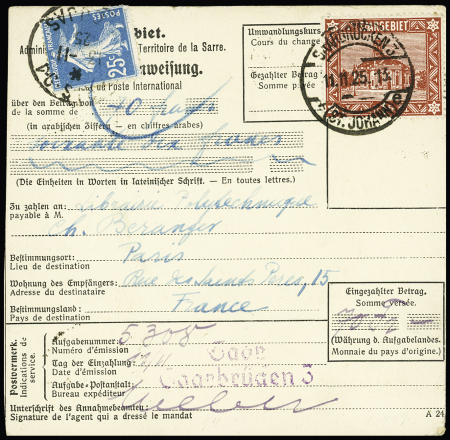 biet.
Administ
Territoire de la Sarre.
nweisung.
de Poste International
25c
Umwandlungskurs
Cours du change
Gezahlter Betrag.
Somme payée
SAARGEBIET
SAARBRÜCKEN 3
11.11.25. 13
(ST. JOHANN)
über den Betrag von
de la somme de
40 francs
(in arabischen Ziffern – en chiffres arabes)
quarante francs
(Die Einheiten in Worten in lateinischer Schrift. – En toutes lettres.)
Zu zahlen an:
payable à M.
Librairie Polytechnique
Ch. Béranger
Bestimmungsort:
Lieu de destination
Paris
Wohnung des Empfängers:
Adresse du destinataire
Rue des Saints Pères, 15
Bestimmungsland:
Pays de destination
France
Eingezahlter Betrag.
Somme versée.
(Währung d. Aufgabelandes.
Monnaie du pays d'origine.)
Postvermerk.
Indications de service.
Aufgabenummer:
Numéro d'émission
Tag der Einzahlung:
Date d'émission
Aufgabe-Postanstalt:
Bureau expéditeur
Saarbrücken 3
Unterschrift des Annahmebeamten:
Signature de l'agent qui a dressé le mandat
A 24